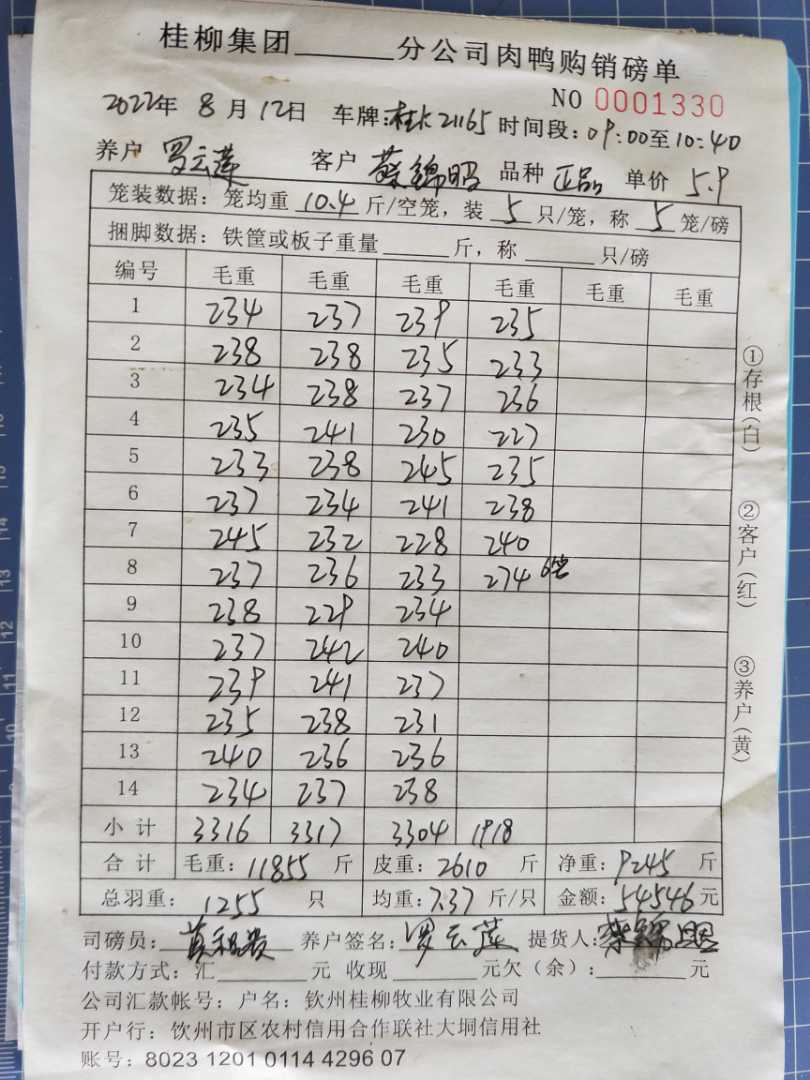 桂柳集团______分公司肉鸭购销磅单
NO 0001330
2022年 8月12日 车牌:桂K21165 时间段:09:00至10:40
养户 罗云莲 客户 蔡锦明 品种 正品 单价 5.9
笼装数据:笼均重 10.4 斤/空笼,装 5 只/笼,称 5 笼/磅
捆脚数据:铁筐或板子重量______斤,称______只/磅
编号 毛重 毛重 毛重 毛重 毛重 毛重
1 234 237 239 235
2 238 238 235 233
3 234 238 237 236
4 235 241 230 227
5 233 238 245 235
6 237 234 241 238
7 245 232 228 240
8 237 236 233 274 6笼
9 238 229 234
10 237 242 240
11 239 241 237
12 235 238 231
13 240 236 236
14 234 237 238
小计 3316 3317 3304 1918
合计 毛重:11855 斤 皮重:2610 斤 净重:9245 斤
总羽重: 1255 只 均重:7.37 斤/只 金额:54546元
司磅员: 养户签名:罗云莲 提货人:蔡锦明
付款方式:汇______元 收现______元欠(余):______元
公司汇款帐号:户名:钦州桂柳牧业有限公司
开户行:钦州市区农村信用合作联社大垌信用社
账号:8023 1201 0114 4296 07
①存根(白)
②客户(红)
③养户(黄)